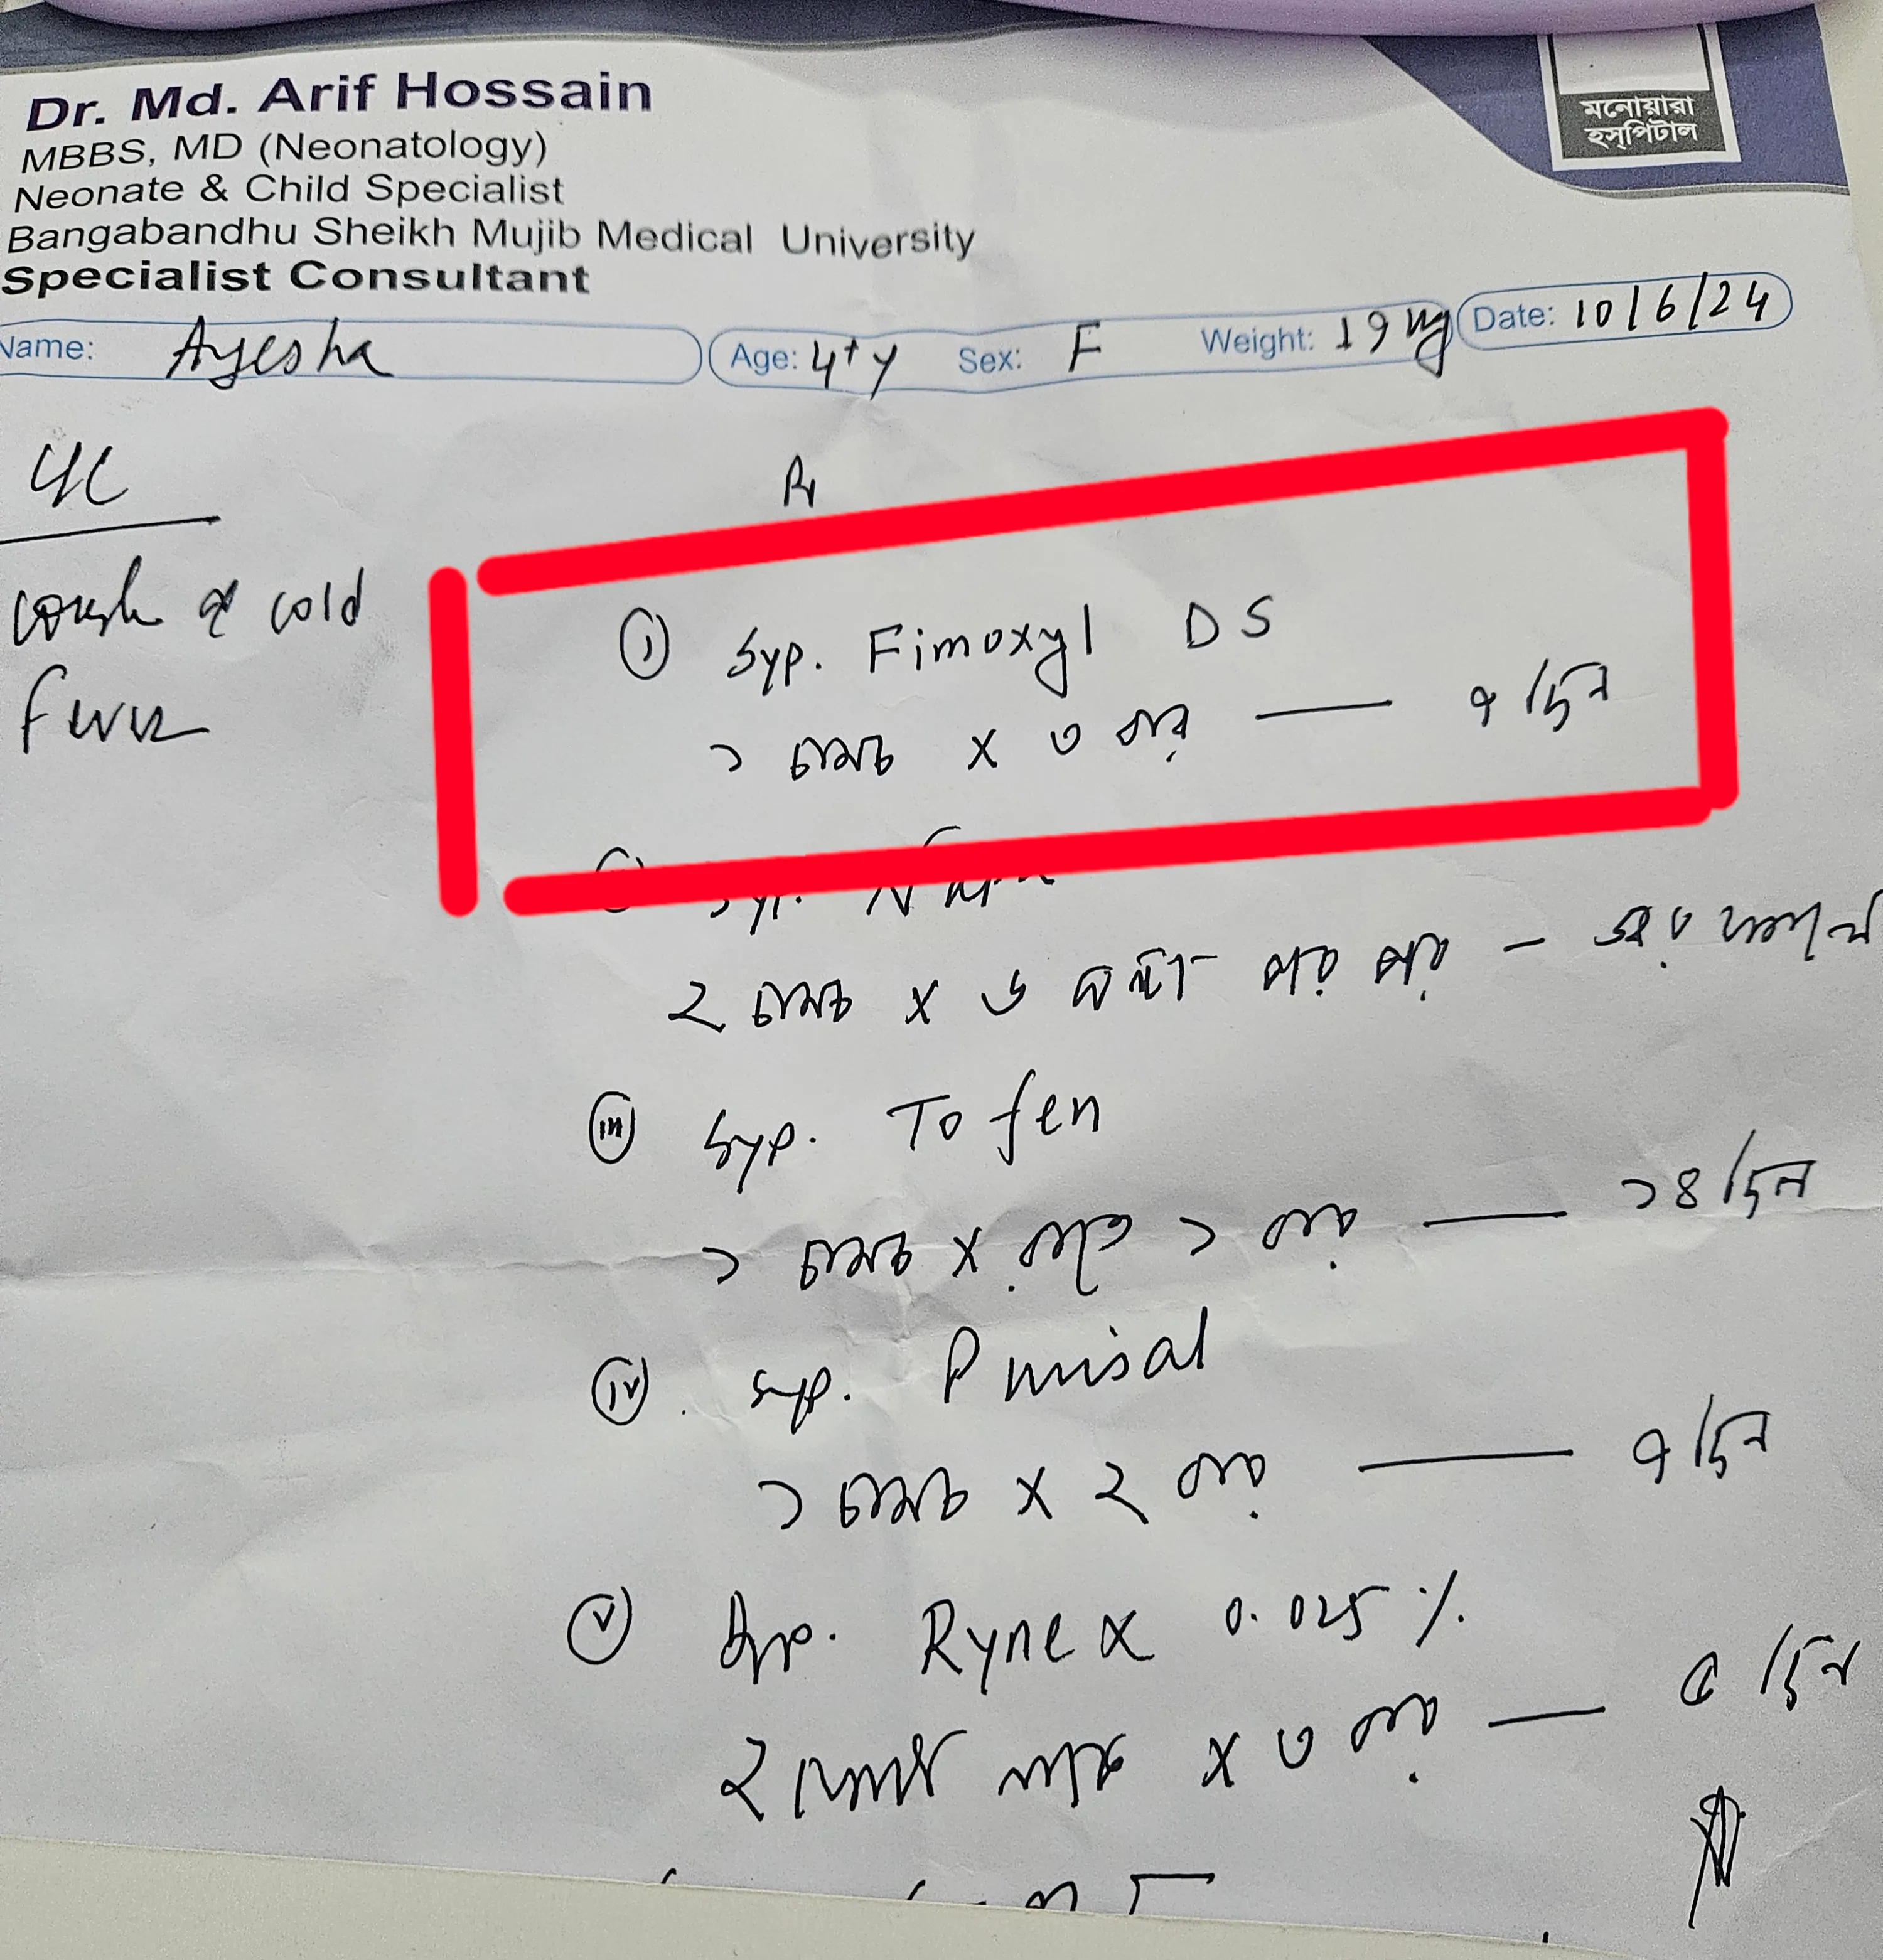 মনোয়ারা
হস্পিটাল
Dr. Md. Arif Hossain
MBBS, MD (Neonatology)
Neonate & Child Specialist
Bangabandhu Sheikh Mujib Medical University
Specialist Consultant
Name: Ayesha Age: 4+y Sex: F Weight: 19 kg Date: 10/6/24
cough & cold
fever
(i) Syp. Fimoxyl DS
১ চামচ x ৩ বার — ৭ দিন
Syp.
২ চামচ x ৬ ঘন্টা পর পর -
(iii) Syp. Tofen
১ চামচ x রাতে ১ বার — ১৪ দিন
(iv) Syp.
১ চামচ x ২ বার — ৭ দিন
(v) Rynex 0.025 %
২ ফোটা নাকে x ৩ বার — ৫ দিন